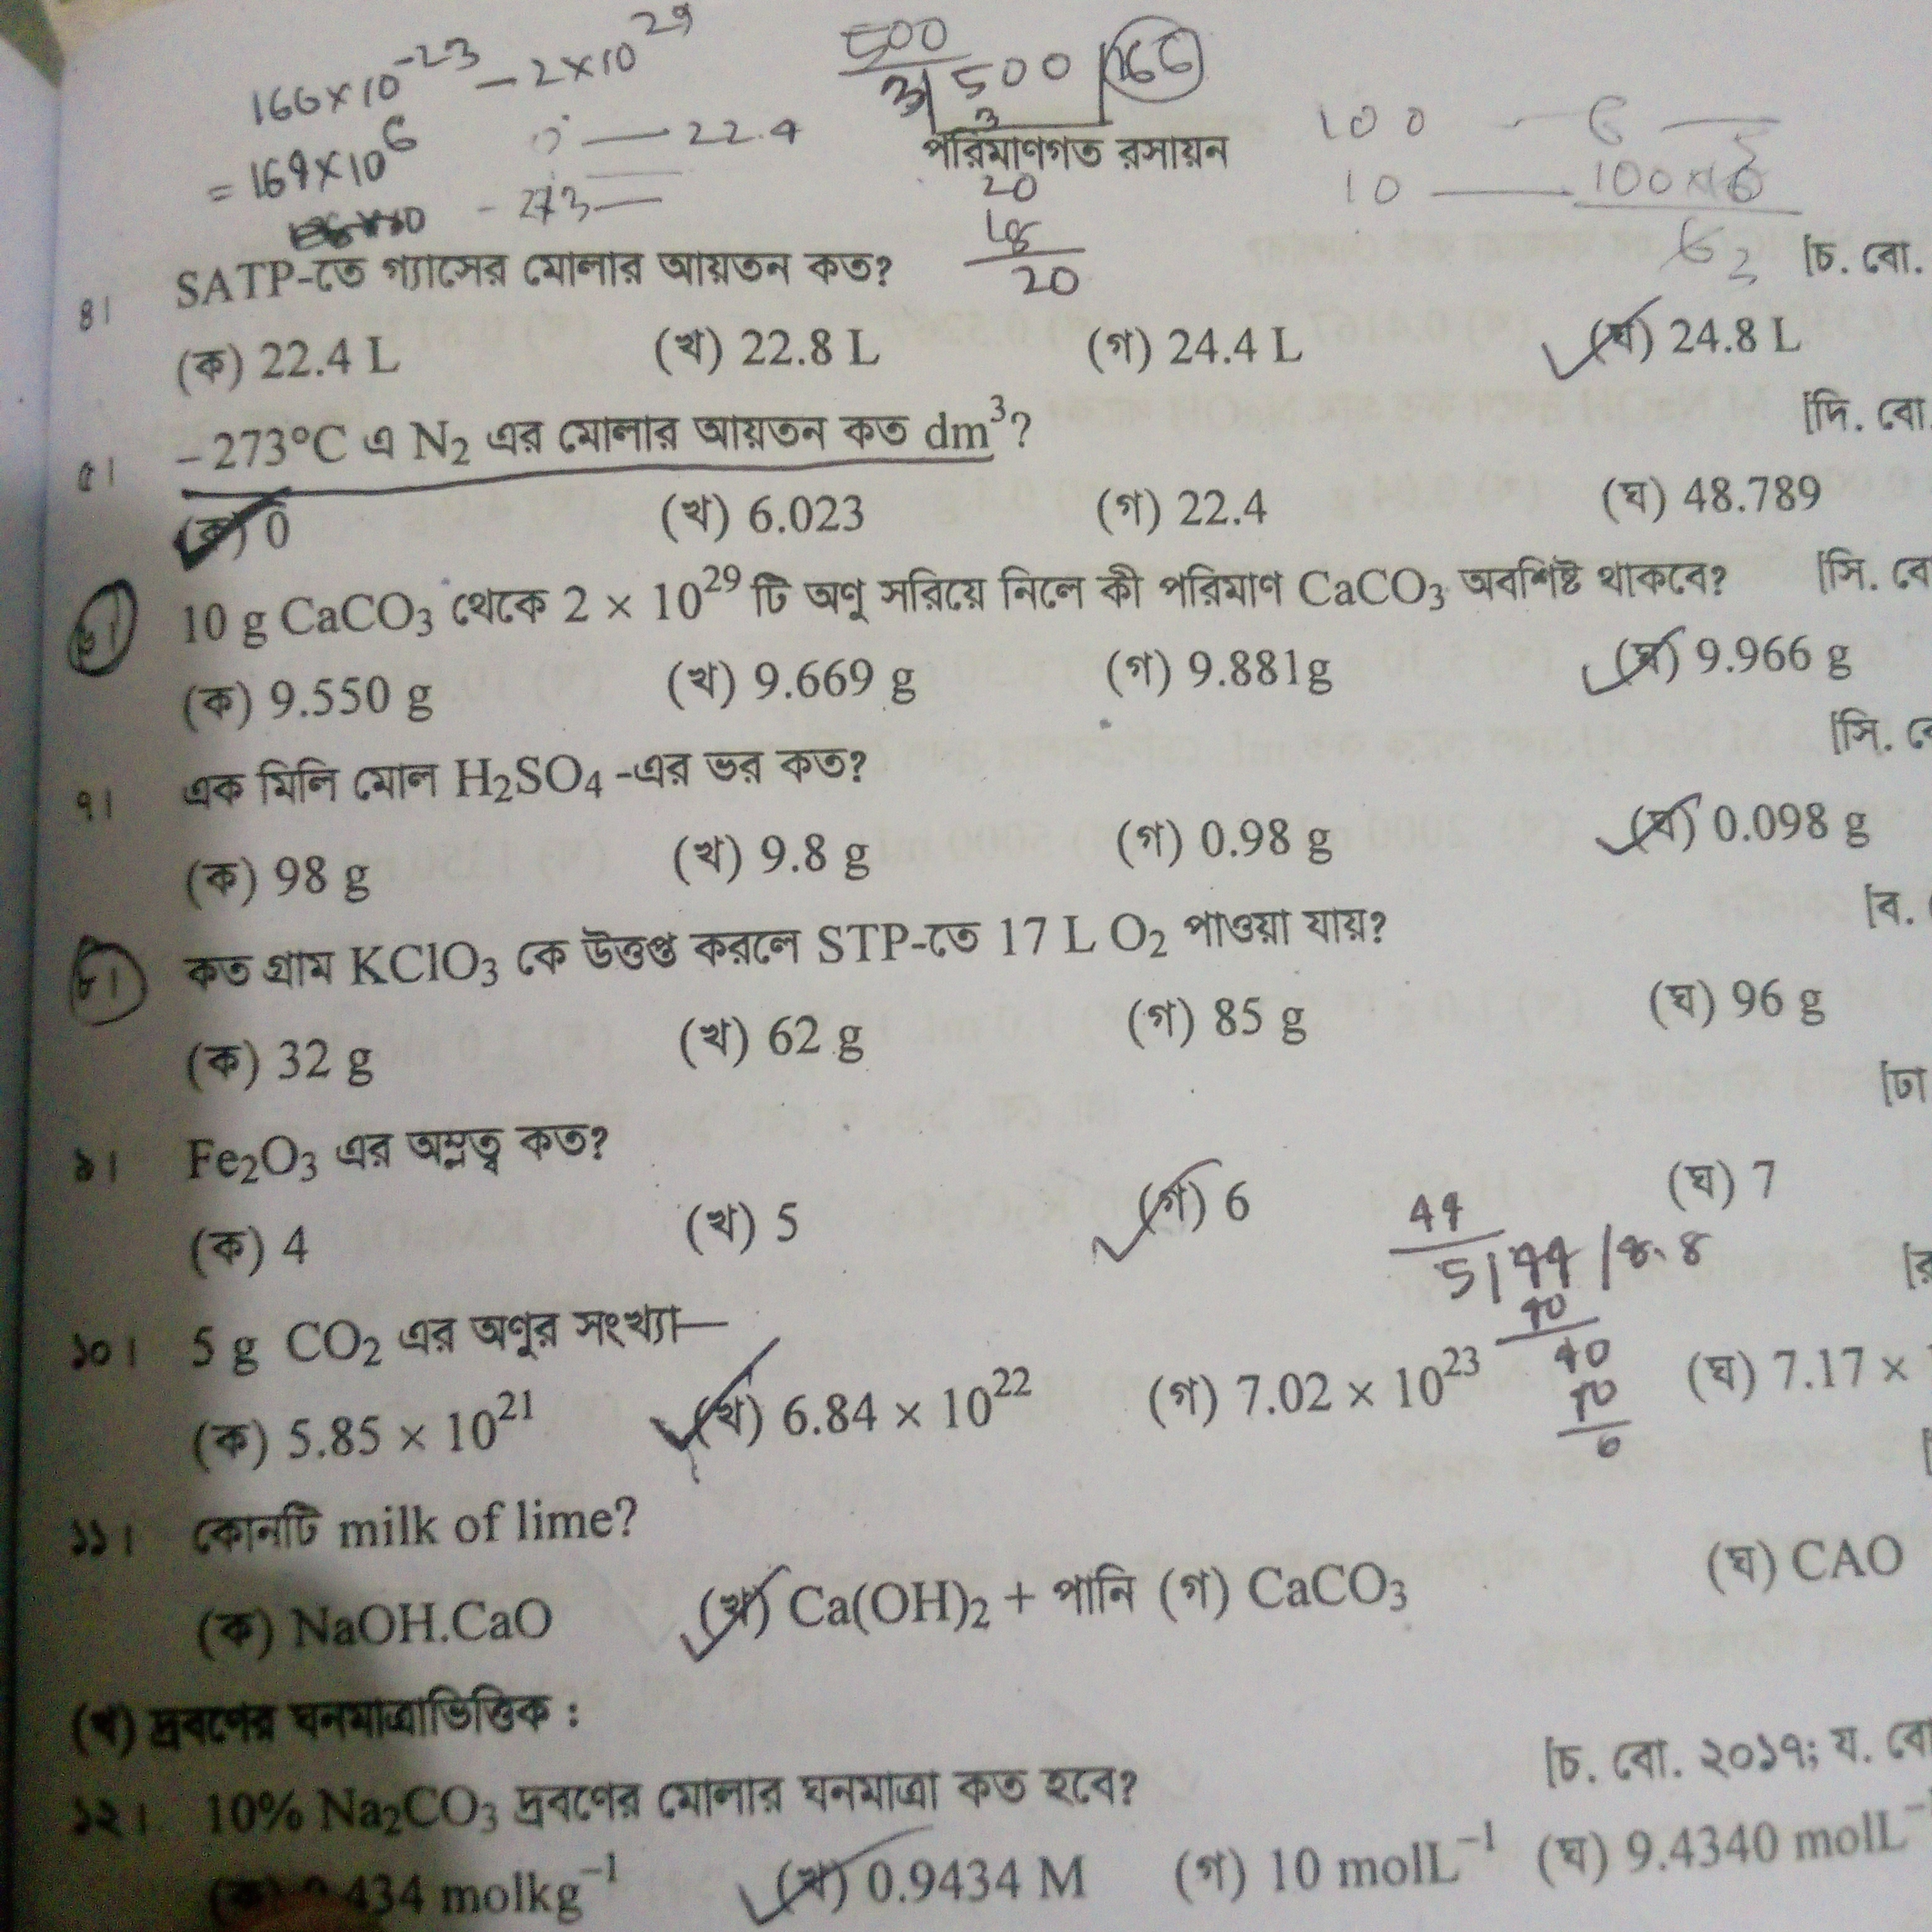 166×10⁻²³ – 2×10²⁹
= 164×10⁶
0° — 22.4
-273 —
500
3|500|166
3
20
18
20
100 — 6
10 — 100×6
পরিমাণগত রসায়ন
৪। SATP-তে গ্যাসের মোলার আয়তন কত? [চ. বো.
(ক) 22.4 L (খ) 22.8 L (গ) 24.4 L (ঘ) 24.8 L
৫। –273°C এ N₂ এর মোলার আয়তন কত dm³? [দি. বো.
(ক) 0 (খ) 6.023 (গ) 22.4 (ঘ) 48.789
৬। 10 g CaCO₃ থেকে 2 × 10²⁹ টি অণু সরিয়ে নিলে কী পরিমাণ CaCO₃ অবশিষ্ট থাকবে? [সি. বো
(ক) 9.550 g (খ) 9.669 g (গ) 9.881g (ঘ) 9.966 g
৭। এক মিলি মোল H₂SO₄ -এর ভর কত? [সি. বো
(ক) 98 g (খ) 9.8 g (গ) 0.98 g (ঘ) 0.098 g
৮। কত গ্রাম KClO₃ কে উত্তপ্ত করলে STP-তে 17 L O₂ পাওয়া যায়? [ব.
(ক) 32 g (খ) 62 g (গ) 85 g (ঘ) 96 g
৯। Fe₂O₃ এর অম্লত্ব কত? [ঢা
(ক) 4 (খ) 5 (গ) 6 (ঘ) 7
44
5|44|8.8
40
40
40
0
১০। 5 g CO₂ এর অণুর সংখ্যা—
(ক) 5.85 × 10²¹ (খ) 6.84 × 10²² (গ) 7.02 × 10²³ (ঘ) 7.17 ×
১১। কোনটি milk of lime?
(ক) NaOH.CaO (খ) Ca(OH)₂ + পানি (গ) CaCO₃ (ঘ) CAO
(খ) দ্রবণের ঘনমাত্রাভিত্তিক :
১২। 10% Na₂CO₃ দ্রবণের মোলার ঘনমাত্রা কত হবে? [চ. বো. ২০১৭; য. বো
(ক) 434 molkg⁻¹ (খ) 0.9434 M (গ) 10 molL⁻¹ (ঘ) 9.4340 molL⁻